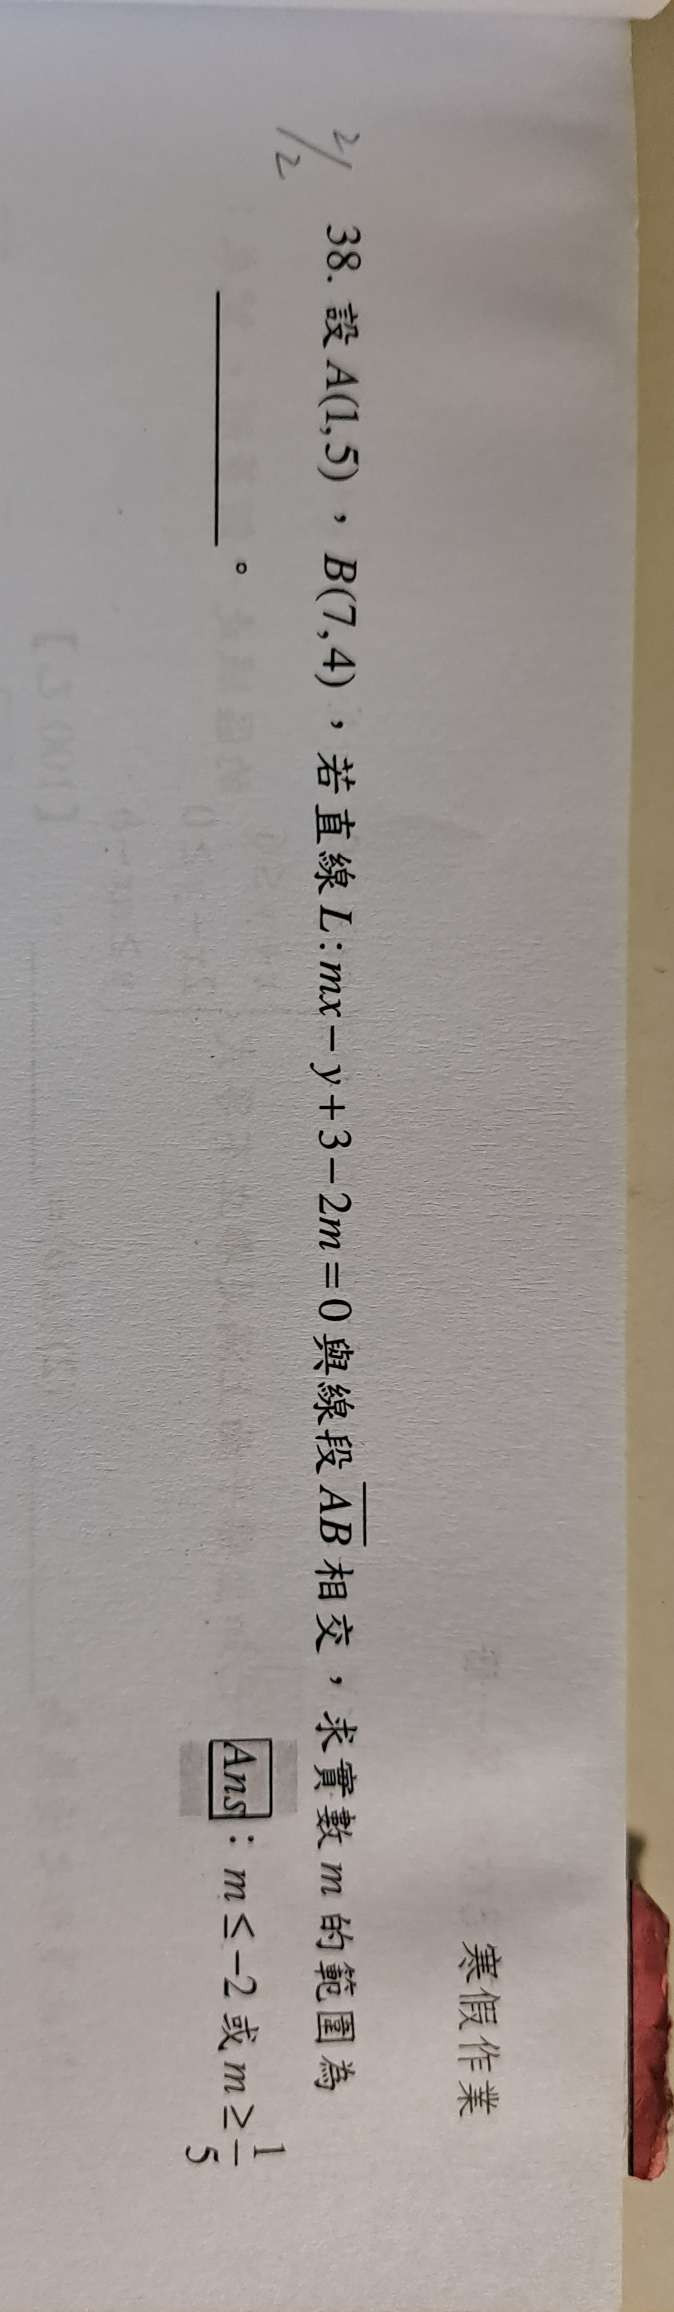 寒假作業
2/2
38. 設 A(1,5)，B(7,4)，若直線 L:mx−y+3−2m=0 與線段 \overline{AB} 相交，求實數 m 的範圍為
＿＿＿＿＿。
Ans：m≤−2 或 m≥1/5